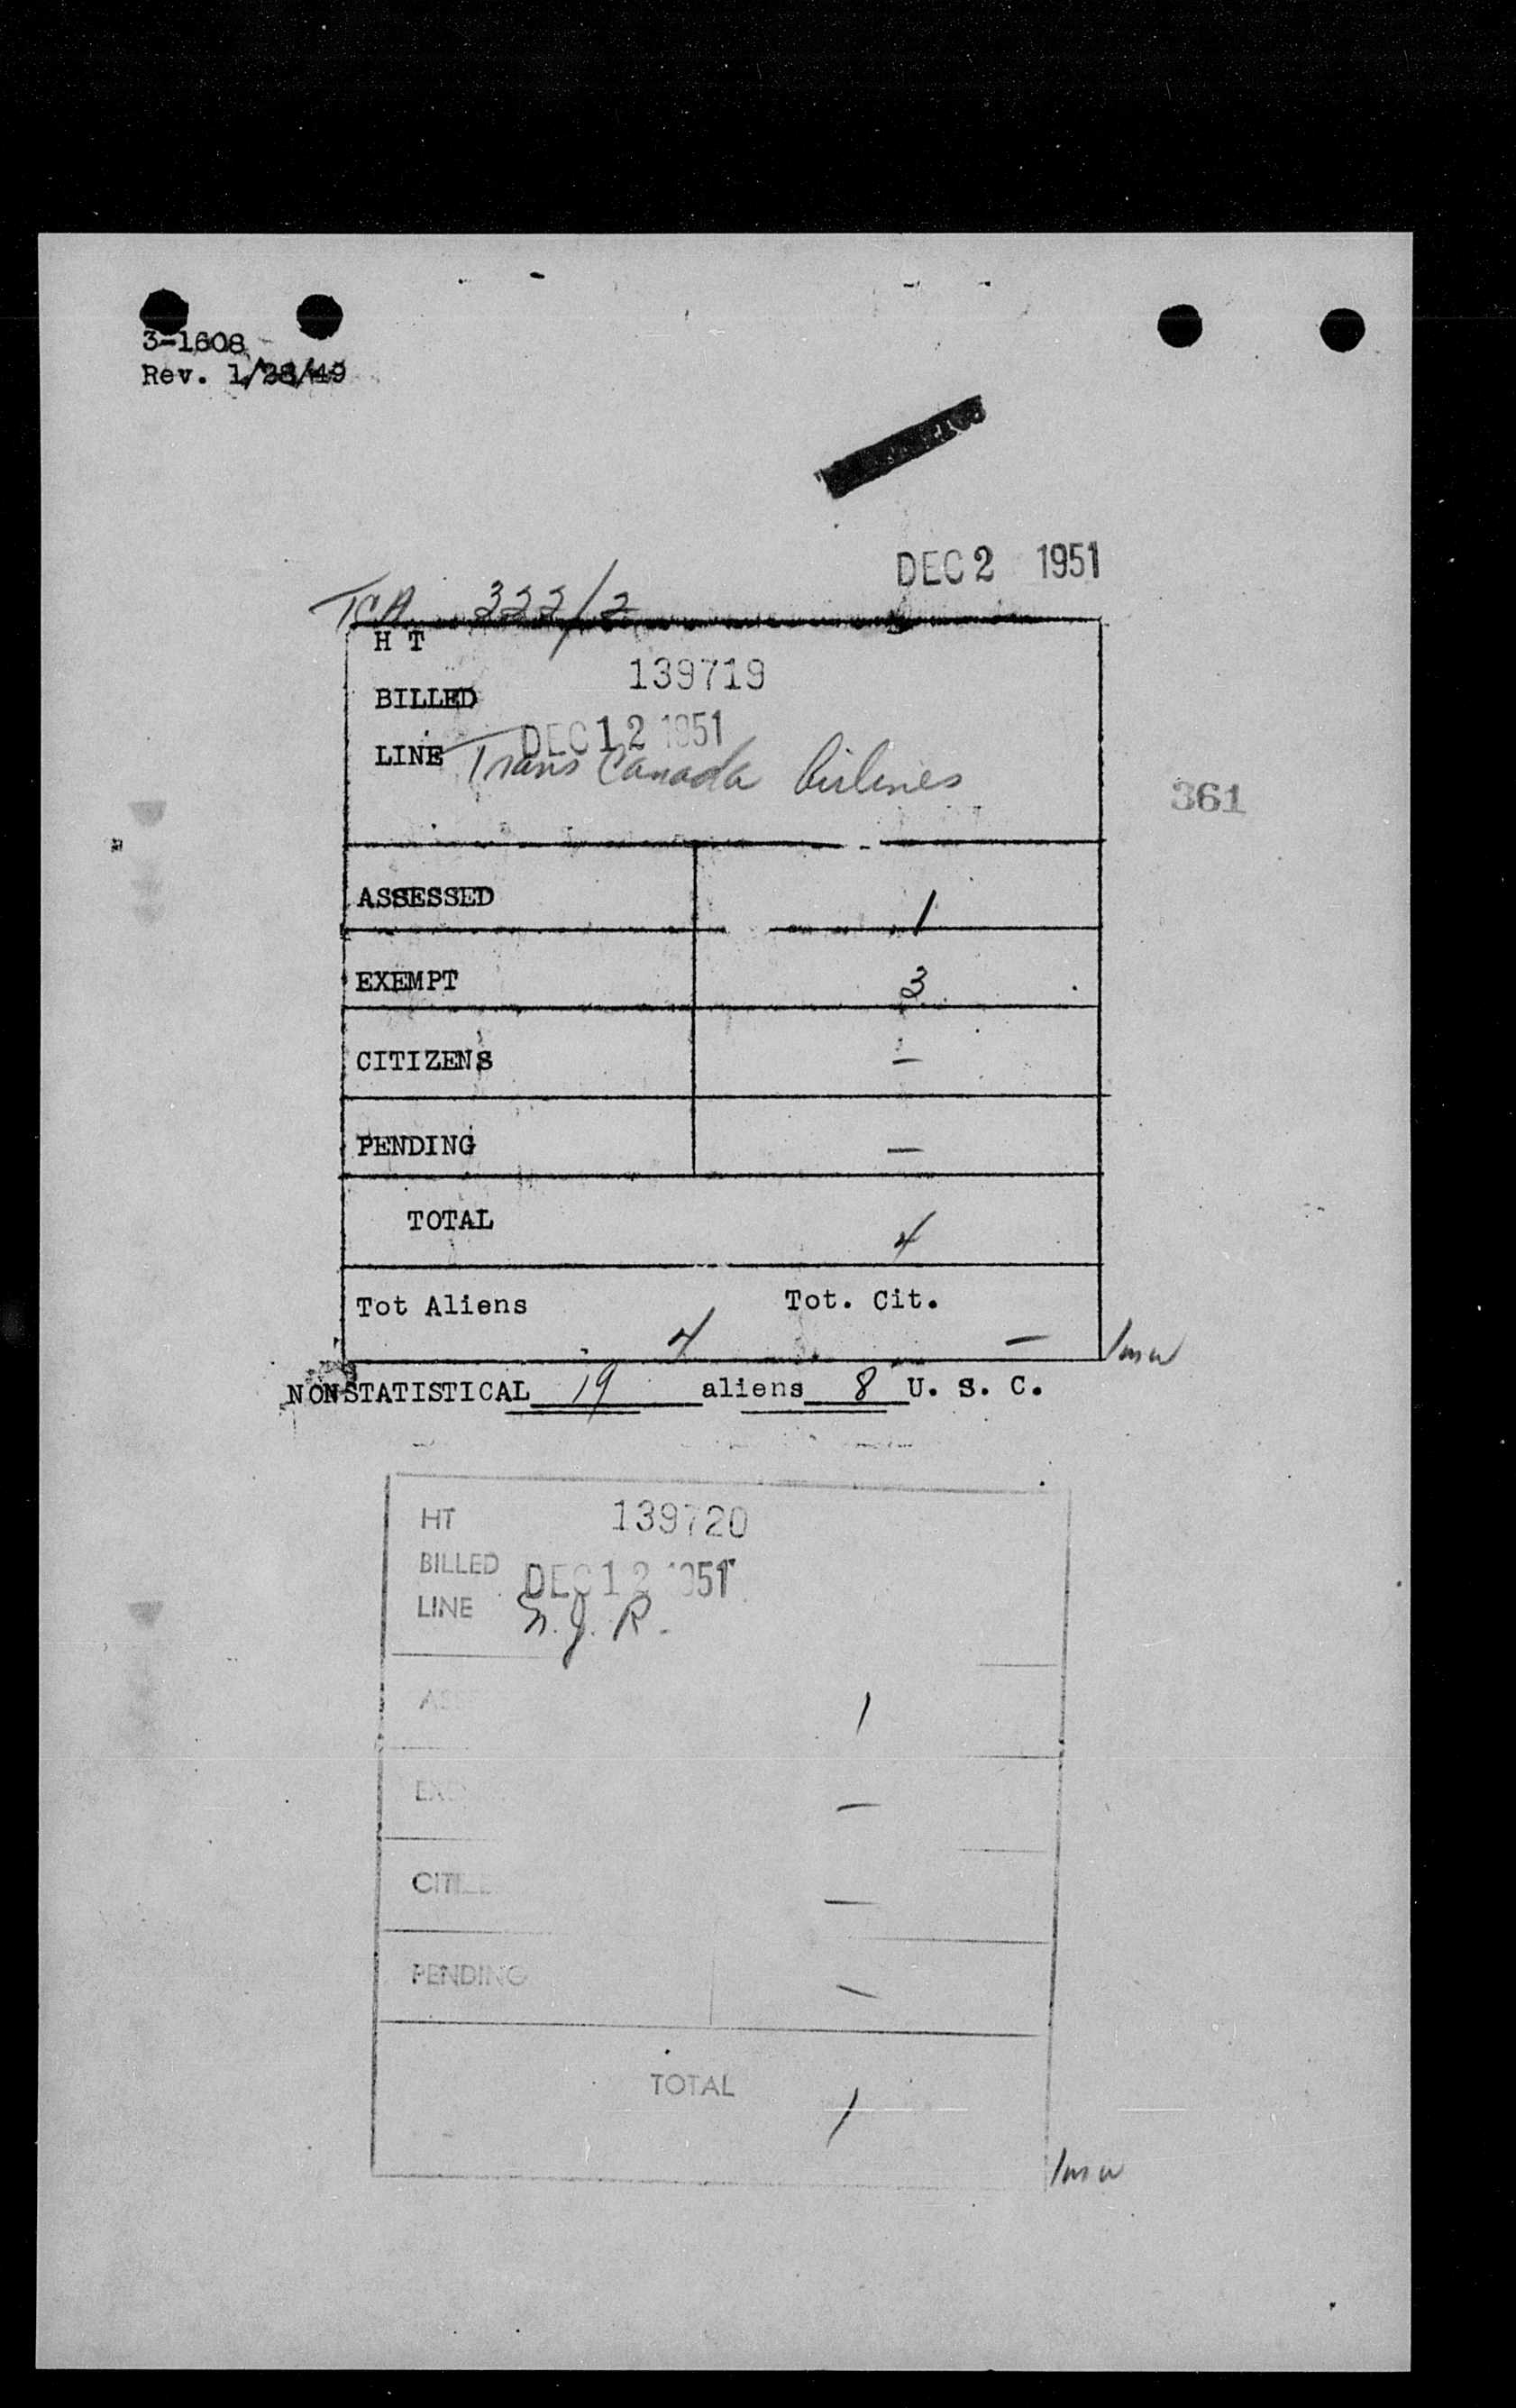 3-1608
Rev. 1/28/49
DEC 2 1951
TCA 322/2
H T
139719
BILLED
DEC 12 1951
LINE Trans Canada Airlines
361
ASSESSED 1
EXEMPT 3
CITIZENS —
PENDING —
TOTAL 4
Tot Aliens Tot. Cit.
4 —
NON-STATISTICAL 19 aliens 8 U. S. C.
HT 139720
BILLED DEC 12 1951
LINE N.J.R.
1
—
—
PENDING —
TOTAL 1